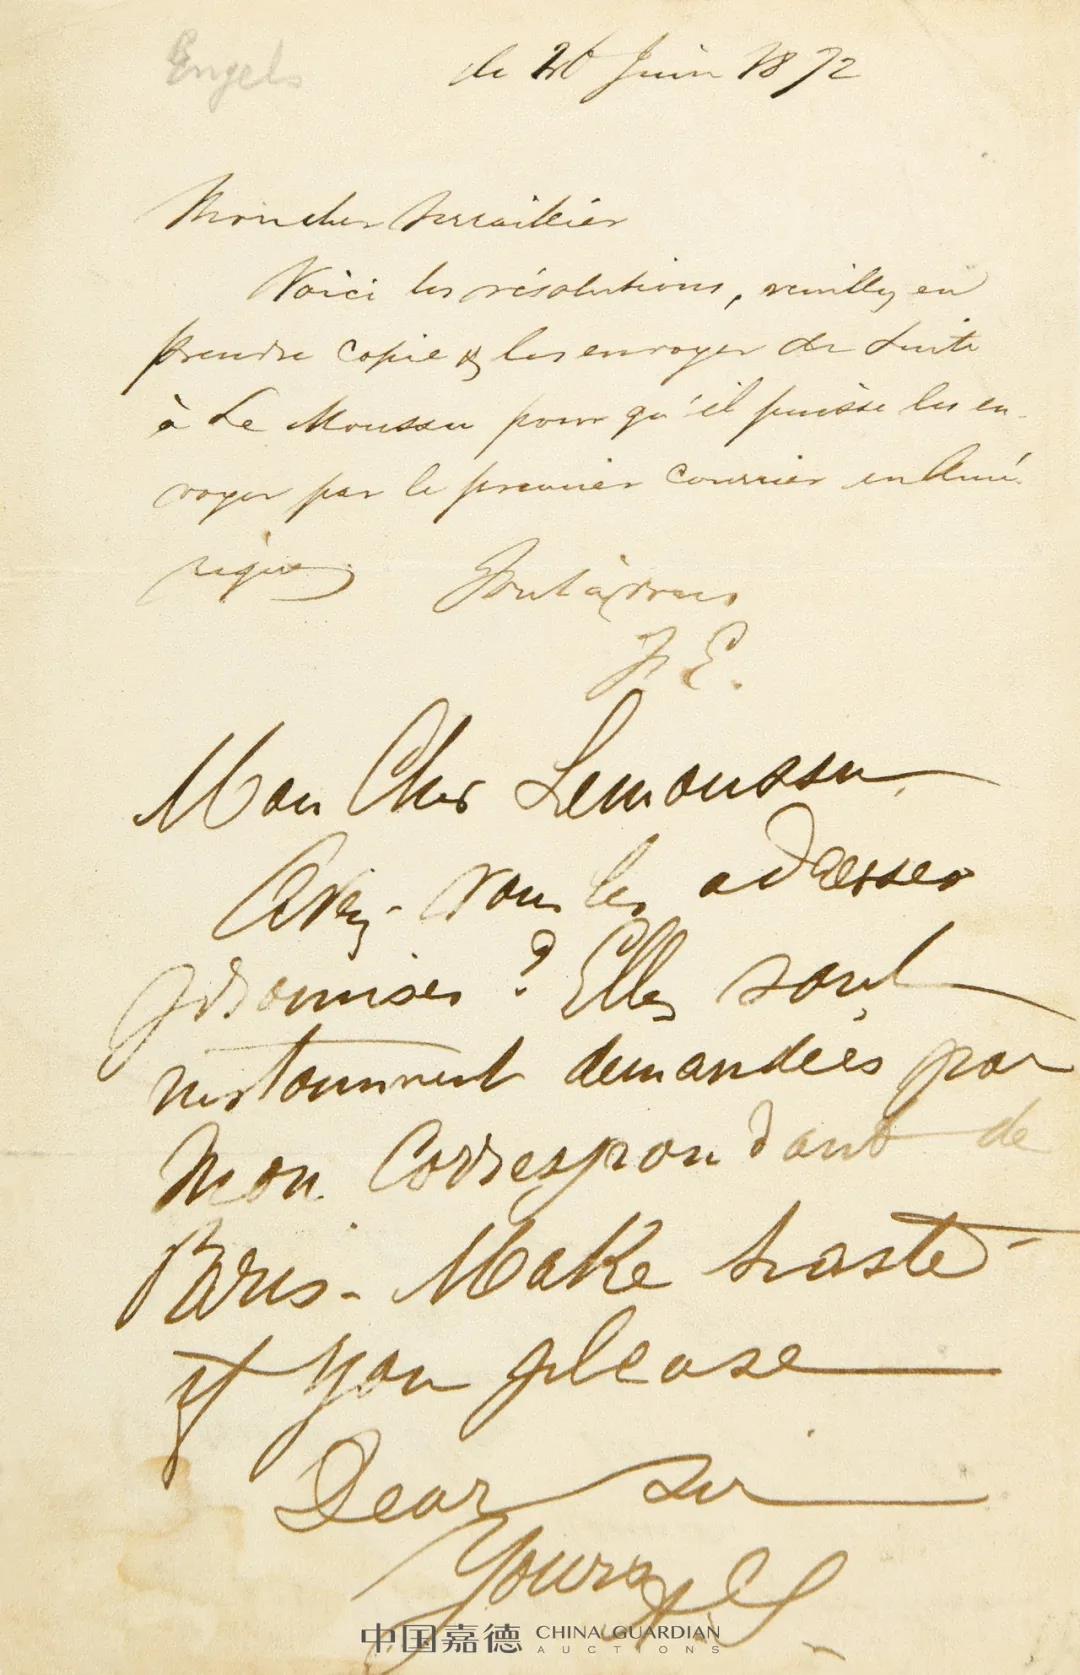 Engels
le 20 Juin 1872
Mon cher Serraillier
Voici les résolutions, veuillez en
prendre copie & les envoyer de suite
à Le Moussu pour qu'il puisse les en-
voyer par le premier courrier en Amé-
rique
Tout à vous
F. E.
Mon Cher Lemoussu,
Avez-vous les adresses
promises ? Elles sont
instamment demandées par
mon Correspondant de
Paris - Make haste -
if you please
Dear sir
Yours
中国嘉德 CHINA GUARDIAN
AUCTIONS